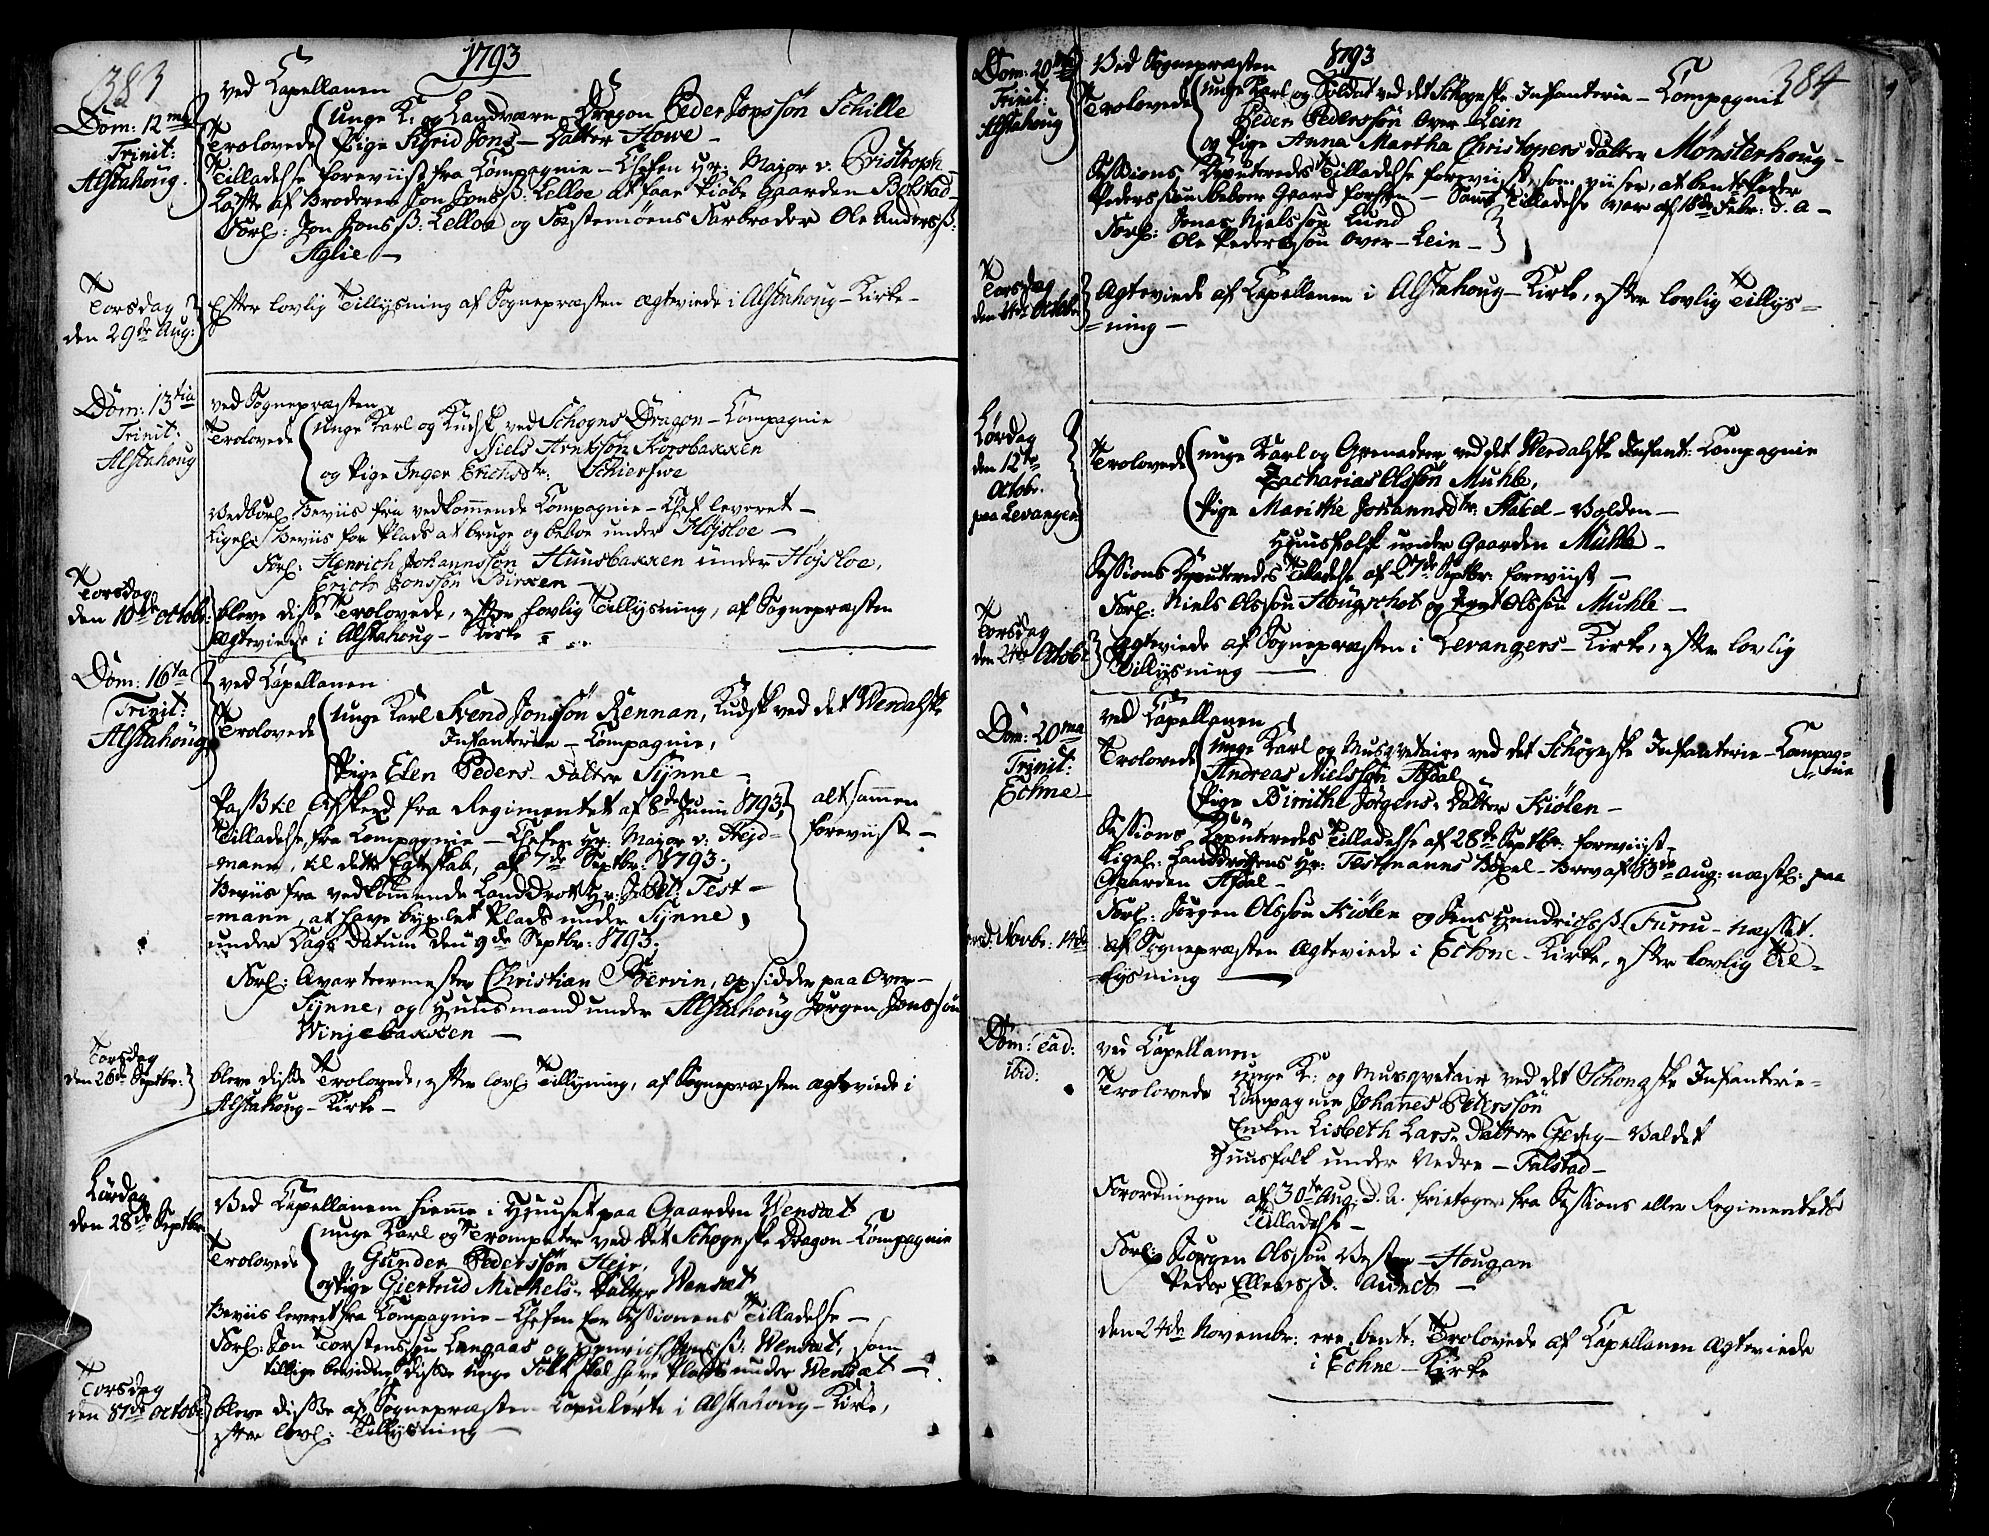 383
1793
Dom: 12ma
Trinit:
Alstahoug.
ved Capellanen
Trolovede
Unge K: og Landværn-Dragon Peder Jonssön Schille
Pige Sigrid Jons-Datter Howe -
Tilladelse foreviist fra Compagnie-Chefen Hr: Major v.
Løfte af Broderen Jon Jonsß: Lelloe at faae Gaarden Bolstad
Forl: Jon Jonsß: Lelloe og Fæstemöens Farbroder Ole Andersß:
Aglie -
Torsdag
den 29de Aug:
Efter lovlig Tillysning af Sognepræsten ægteviede i Alstahoug-Kirke -
Dom: 13tia
Trinit:
Alstahoug
ved Sognepræsten
Trolovede
Unge Karl og Kudsk ved Schogns Dragon-Compagnie
Niels Arntssön Korsbakken
og Pige Inger Erichsdtr.
Beviis fra vedkommende Compagnie-Chef leveret -
Beviis for Plads at bruge og beboe under Højsloe -
Forl: Henrich Johannssön Huusbakken under Höjsloe,
Erich Jonssön Birken -
Torsdag
den 10de Octobr:
bleve disse Trolovede, efter lovlig Tillysning, af Sognepræsten
ægteviede i Alstahoug-Kirke
Dom: 16ta
Trinit:
Alstahoug
ved Capellanen
Trolovede
Unge Karl Svend Jonssön Rennan, Kudsk ved det Werdalske
Infanterie-Compagnie,
Pige Elen Peders-Datter Synne -
Paß til Afskeed fra Regimentet af 8de Junii 1793,
Tilladelse, fra Compagnie-Chefen Hr: Major v: Hejd-
=mann, til dette Egteskab, af 7de Septbr: 1793.
Beviis fra vedkommende Landdrost Hr: Test-
=mann, at have Plads under Synne,
under Dags Datum den 9de Septbr: 1793.
alt sammen
foreviist -
Forl: Qvarteermester Christian Bervin, opsidder paa Over-
Synne, og Huusmand under Alstahoug Jørgen Jonssön
Winjebakken -
Torsdag
den 26de Septbr:
bleve disse Trolovede, efter lovl: Tillysning, af Sognepræsten ægteviede i
Alstahoug-Kirke -
Lørdag
den 28de Septbr
Ved Capellanen hiemme i Huuset paa Gaarden Wensæt
Trolovede
unge Karl og Trompeter ved det Schognske Dragon-Compagnie
Gunder Pederssön Heje,
og Pige Giertrud Michels-Datter Wensæt
Beviis leveret fra Compagnie-Chefen for Sessionens Tilladelse -
Forl: Jon Torstenssön Langaas og Henrich Jonsß: Wensæt, som
tillige disse unge Folk skal have Plads under Wensæt -
Torsdag
den Octobr
bleve disse af Sognepræsten Copulerte i Alstahoug-Kirke,
efter lovl: Tillysning -
384
1793
Dom: 20
Trinit:
Alstahoug
Ved Sognepræsten
Trolovede
unge Karl og Soldat ved det Schognske Infanterie-Compagnie
Peder Pederssön Over-Lein
og Pige Anna Martha Christophers datter Mönsterhoug -
Sessions Deputeredes Tilladelse foreviist, som viiser, at bemte Peder
Pederssön beboer Gaard forhen - Samme Tilladelse var af 18de Febr: d. a -
Forl: Jonas Nielssön Lund
Ole Pederssön Over-Lein -
Torsdag
den Octobr
Ægteviede af Capellanen i Alstahoug-Kirke, efter lovlig Tillys=
=ning -
Lørdag
den 12te
Octobr.
paa Levanger
Trolovede
unge Karl og Grenadeer ved det Werdalske Infant: Compagnie
Zacharias Olssön Mühle,
Pige Marithe Johannsdtr. Stabel-Volden -
Huusfolk under Gaarden Mühle -
Sessions Deputeredes Tilladelse af 27de Septbr. foreviist -
Forl: Niels Olssön Hougschot og Olssön Muhle -
Torsdag
den 24de Octobr
Ægteviede af Sognepræsten i Levangers-Kirke, efter lovlig
Tillysning -
Dom: 20ma
Trinit:
Echne
ved Capellanen
Trolovede
Unge Karl og Musqvetair ved det Schognske Infanterie-Compag=
nie
Andreas Nielssön Afdal
Pige Birrithe Jørgens-Datter Kiölen -
Sessions Deputeredes Tilladelse af 28de Septbr. foreviist -
Ligel: Landdrostens Hr: Testmanns Böxel-Brev af Aug: næstl: paa
Gaarden Afdal -
Forl: Jørgen Olssön Kiölen og Jens Hendrichsß: Furru-
Novbr: 14de
af Sognepræsten ægteviede i Echne-Kirke, efter lovlig Til=
=lysning -
Dom: ead:
ibid:
ved Capellanen
Trolovede
unge K: og Musqvetair ved det Schongske Infanterie-
Compagnie Johanes Peterssön
Enken Lisbeth Lars-Datter Valdet
Huusfolk under Nedre-Falstad -
Forordningen af 30te Aug: d. A. fritager fra Sessions eller Regimentets
Tilladelse -
Forl: Jørgen Olssön Vester-Hougan
Peder Ellevsß. Aunet -
den 24de Novembr: ere bemte: Trolovede af Capellanen Ægteviede
i Echne-Kirke